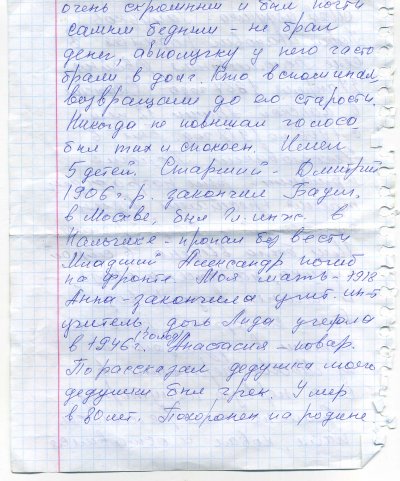 очень скромным и был почти
самым бедным - не брал
денег, а   у него часто
брали в долг. Кто вспоминал
возвращали до его старости.
Никогда не повышал голоса
был тих и спокоен. Имел
5 детей. Старший - Дмитрий
1906 г. р. закончил
в Москве, был гл. инж. в
Нальчике - пропал без вести
Младший Александр погиб
на фронте. Моя мать - 1918
Анна - закончила учит. ин-т
учитель, дочь Лида умерла
в 1946 г. (голод) Анастасия - повар.
По рассказам дедушка моего
дедушки был грек. Умер
в 80 лет. Похоронен на родине